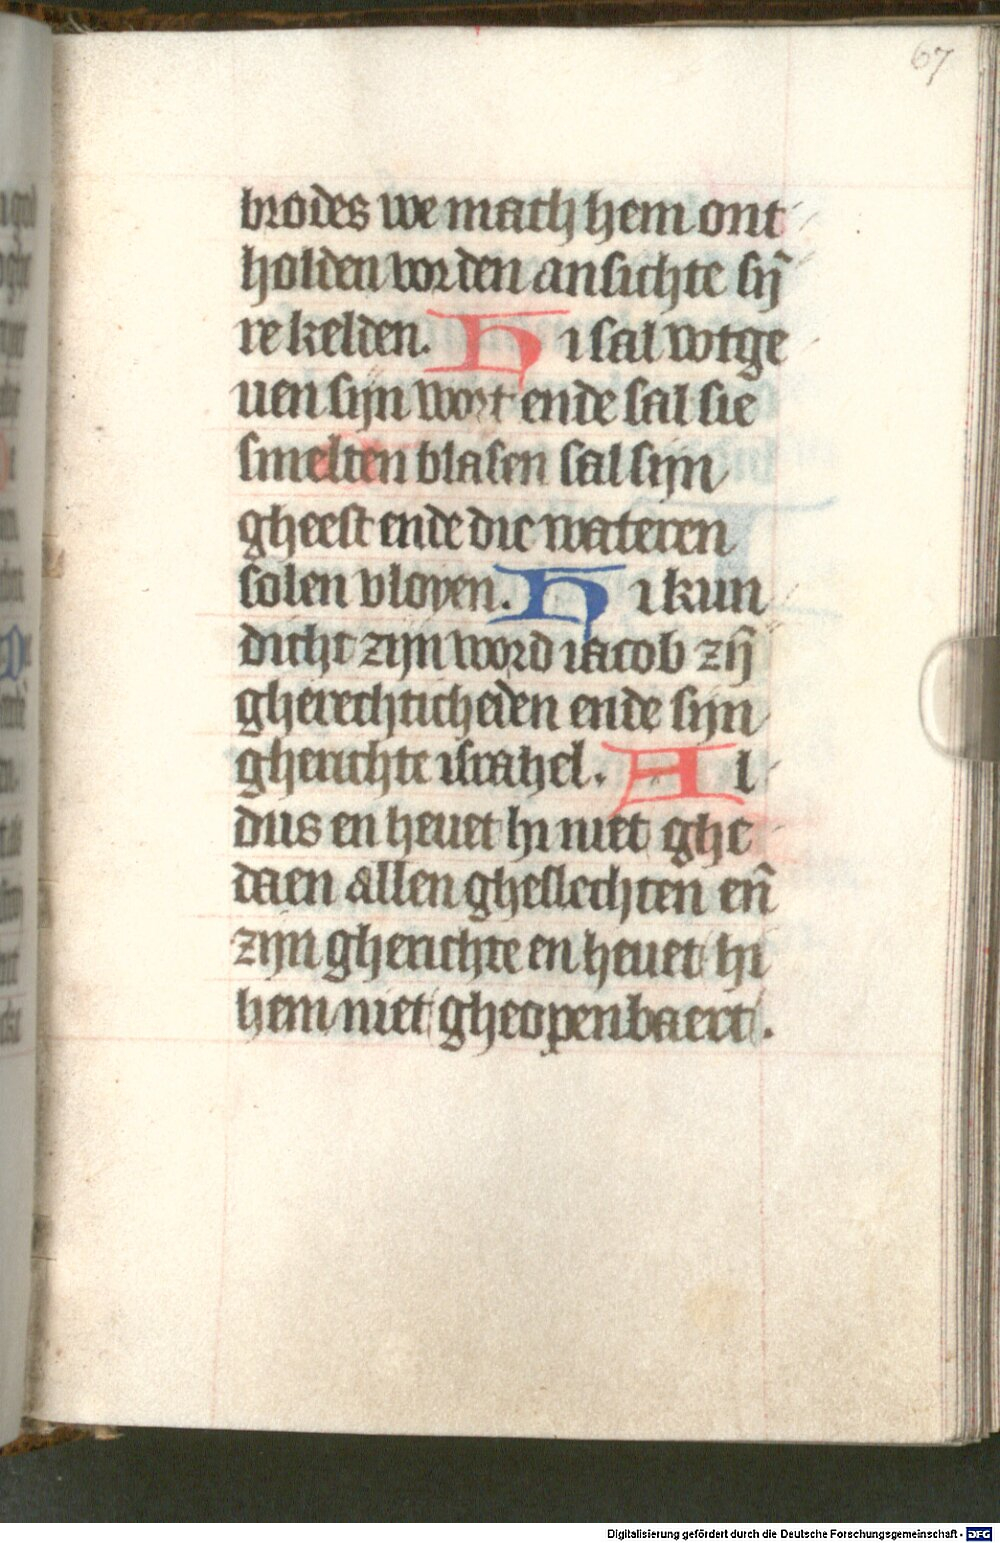 67
brodes we mach hem ont
holden vor den ansichte sÿ̄
re kelden. Hi sal wtge
uen sijn wort ende sal sie
smelten blasen sal sijn
gheest ende die wateren
solen vloyen. Hi kun
dicht zijn word iacob zȳ
gherechticheden ende sijn
gherichte israhel. Al
dus en heuet hi niet ghe
daen allen gheslechten en̄
zijn gherichte en heuet hi
hem niet gheopenbaert.
Digitalisierung gefördert durch die Deutsche Forschungsgemeinschaft - DFG